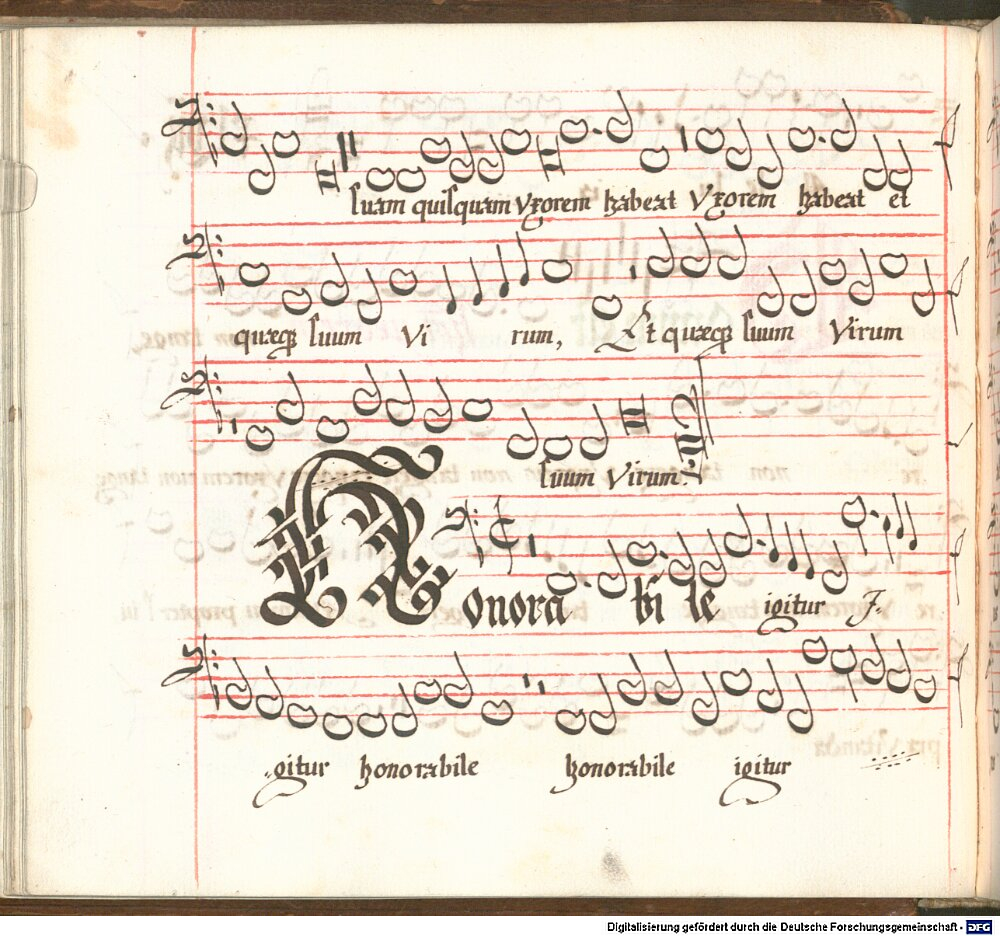 suam quisquam Vxorem habeat Vxorem habeat et
quæq; suum Vi rum, Et quæq; suum Virum
suum Virum.
Honora bi le igitur J-
-gitur honorabile honorabile igitur
Digitalisierung gefördert durch die Deutsche Forschungsgemeinschaft - DFG